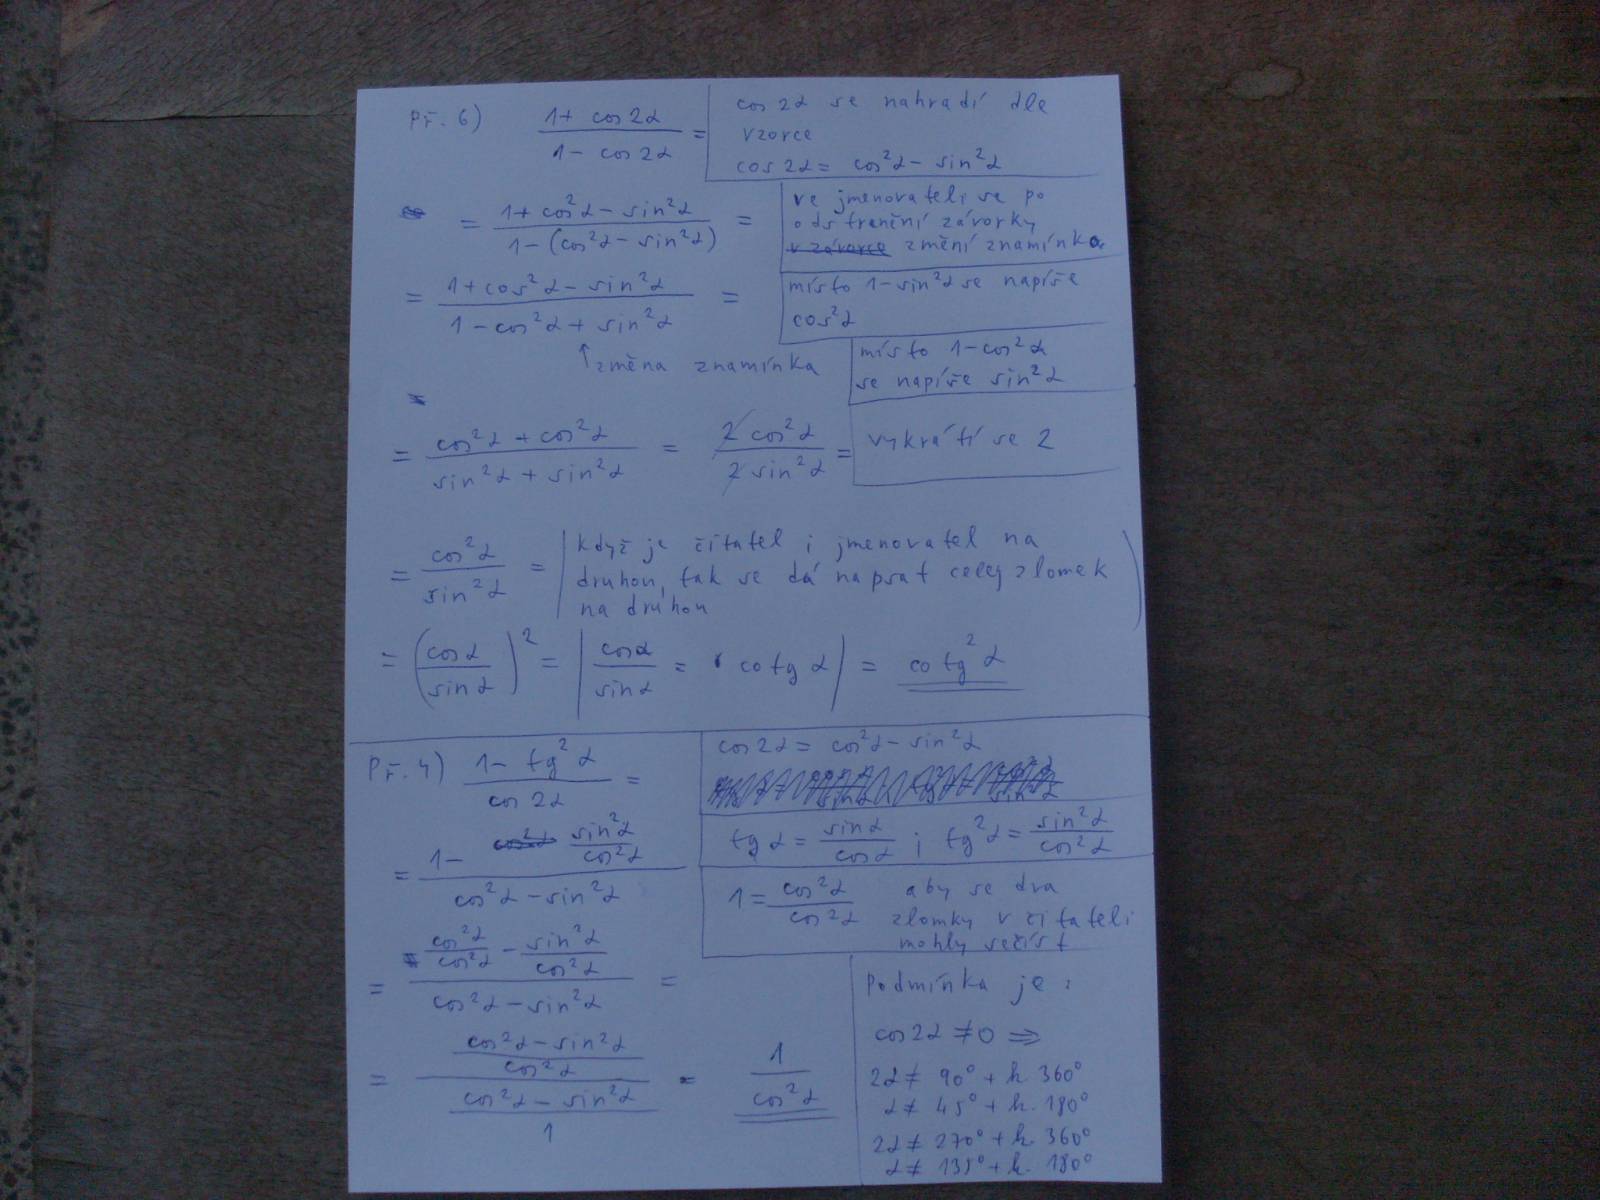 Př. 6) (1 + cos 2α)/(1 - cos 2α) =
cos 2α se nahradí dle
vzorce
cos 2α = cos²α - sin²α
= (1 + cos²α - sin²α)/(1 - (cos²α - sin²α)) =
ve jmenovateli se po
odstranění závorky
v závorce změní znamínka
= (1 + cos²α - sin²α)/(1 - cos²α + sin²α) =
místo 1 - sin²α se napíše
cos²α
↑ změna znamínka
místo 1 - cos²α
se napíše sin²α
= (cos²α + cos²α)/(sin²α + sin²α) = (2 cos²α)/(2 sin²α) =
vykrátí se 2
= cos²α/sin²α =
když je čitatel i jmenovatel na
druhou, tak se dá napsat celej zlomek
na druhou
= (cos α/sin α)² = | cos α/sin α = cotg α | = cotg²α
Př. 4) (1 - tg²α)/(cos 2α) =
cos 2α = cos²α - sin²α
tg α = sin α/cos α ; tg²α = sin²α/cos²α
= (1 - sin²α/cos²α)/(cos²α - sin²α)
1 = cos²α/cos²α aby se dva
zlomky v čitateli
mohly sečíst
= (cos²α/cos²α - sin²α/cos²α)/(cos²α - sin²α) =
= ((cos²α - sin²α)/cos²α)/((cos²α - sin²α)/1) = 1/cos²α
Podmínka je:
cos 2α ≠ 0 ⇒
2α ≠ 90° + k. 360°
α ≠ 45° + k. 180°
2α ≠ 270° + k. 360°
α ≠ 135° + k. 180°